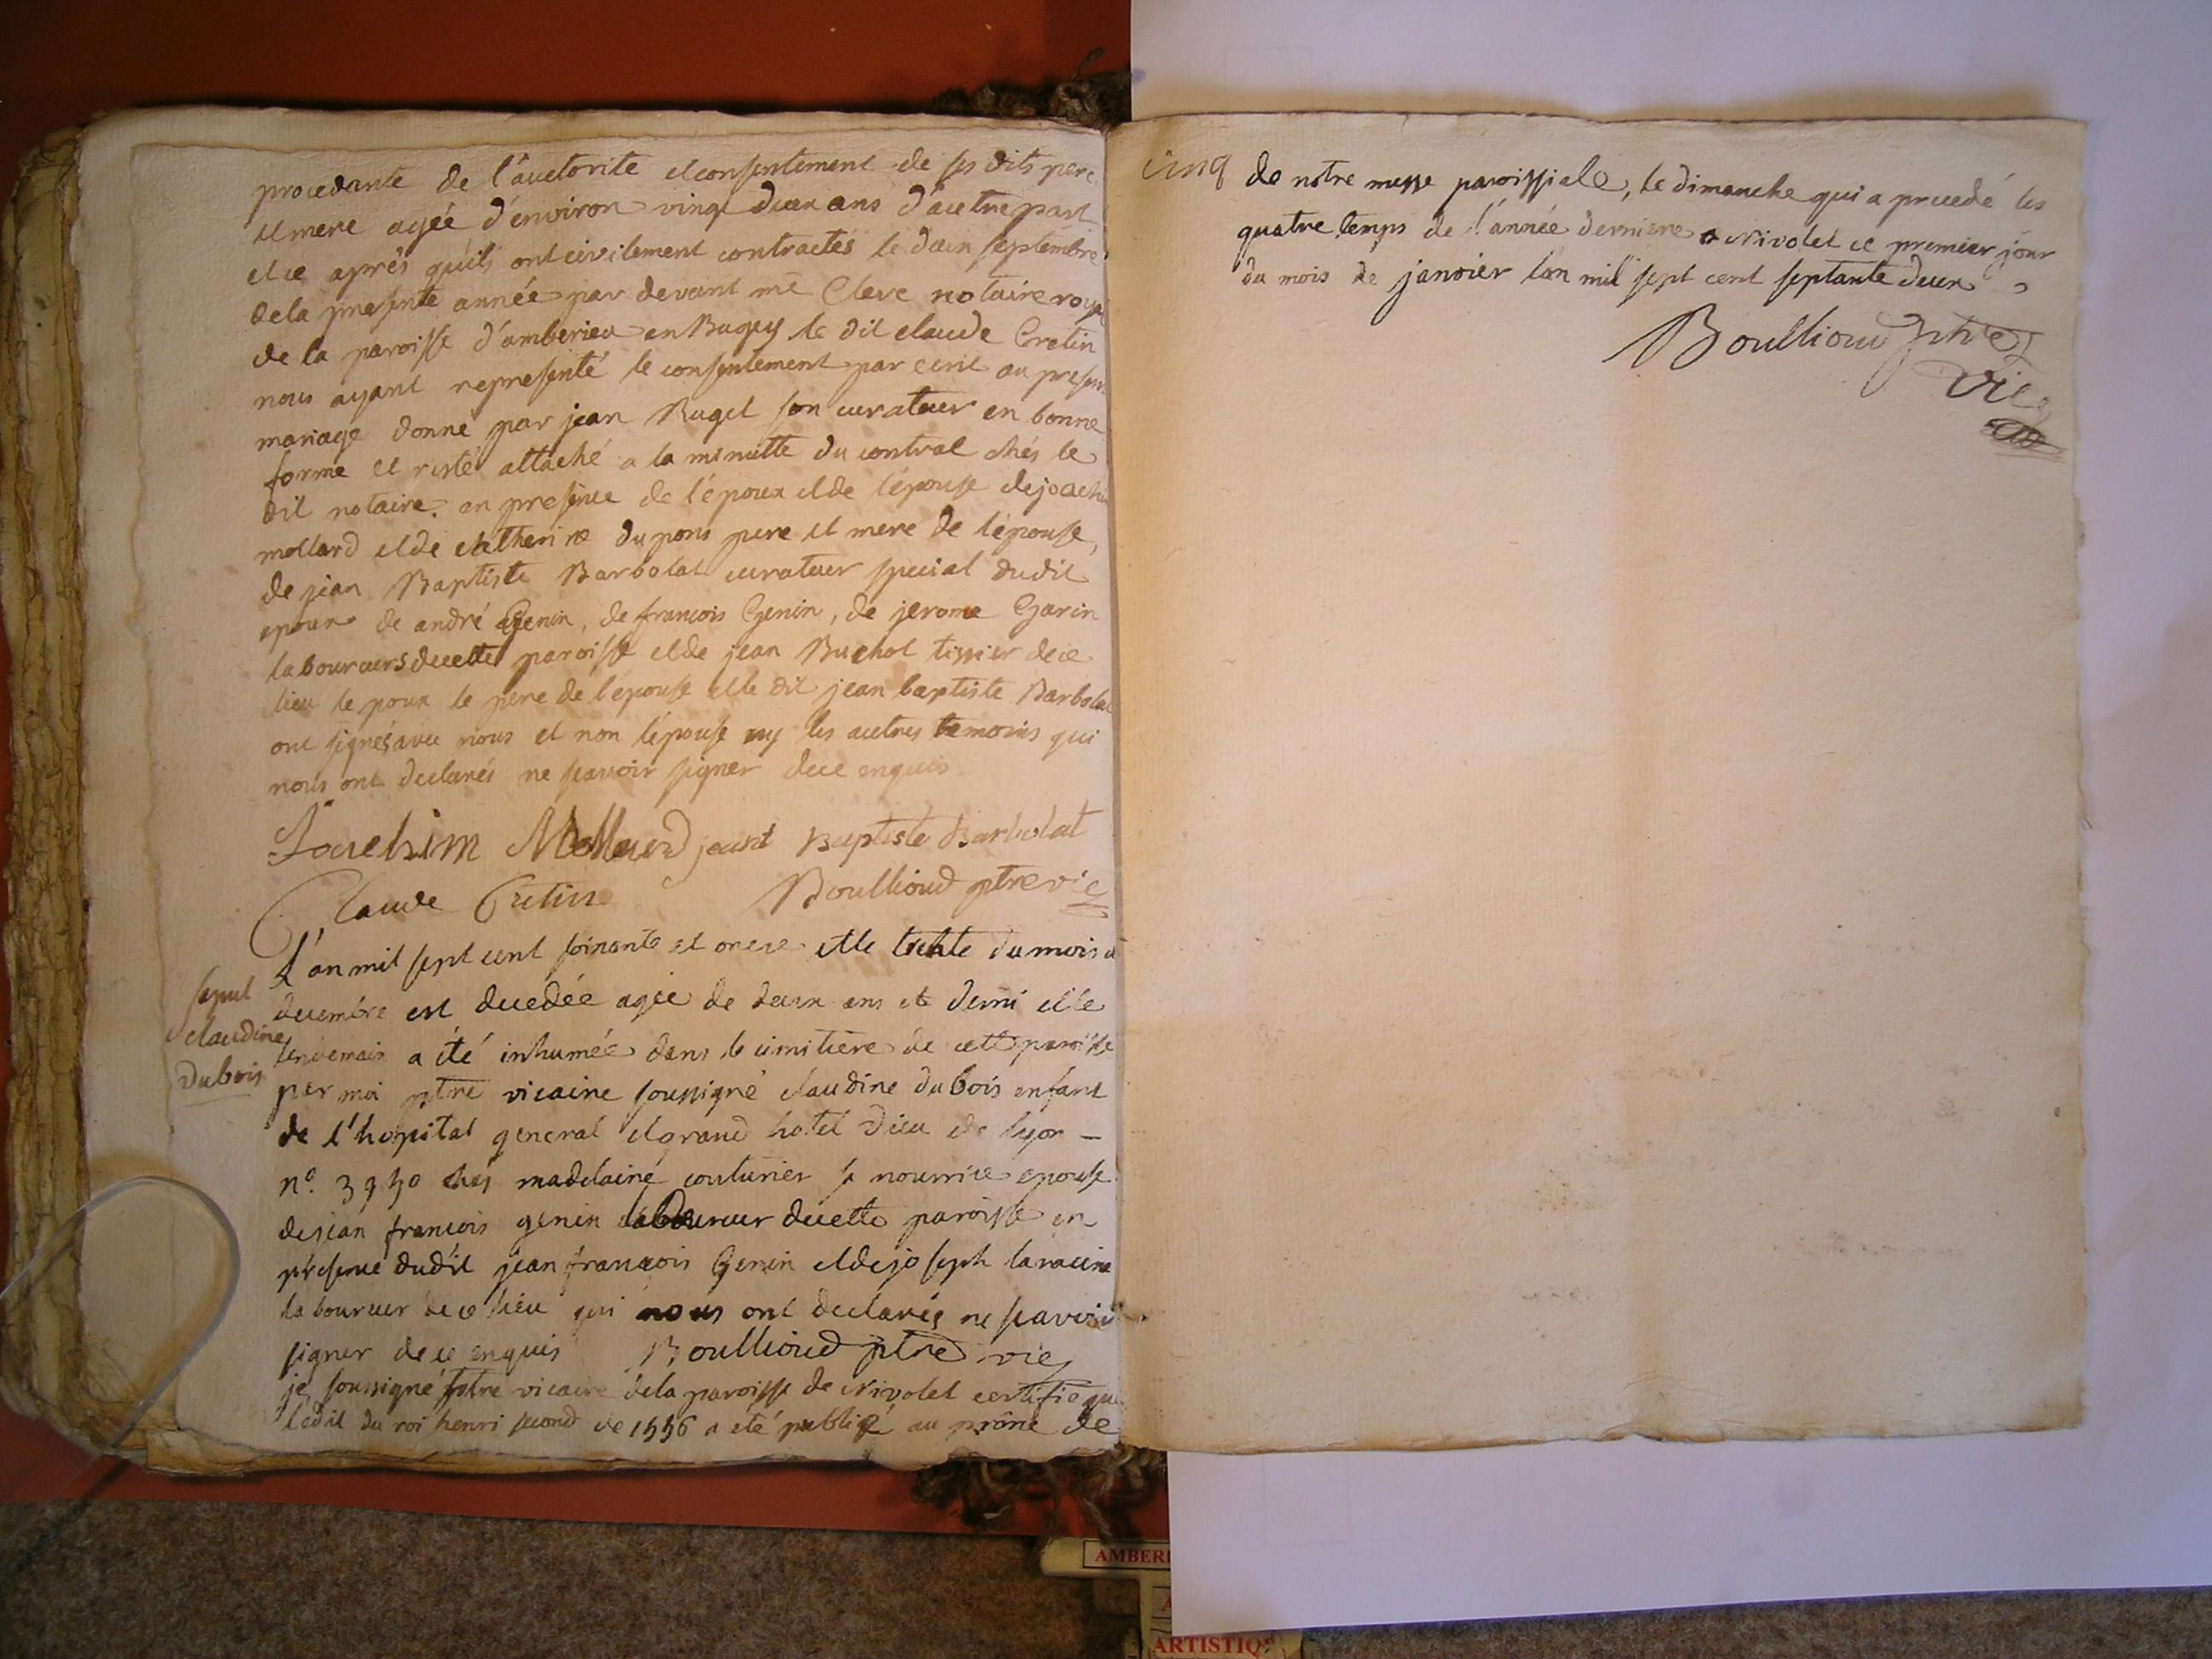 procedante de l'auctorite et consentement de ses dits pere
et mere agée d'environ vingt deux ans d'autre part
et ce aprés qu'ils ont civilement contractés le deux septembre
de la presente année par devant me Cleve notaire royal
de la paroisse d'amberieu en Bugey le dit claude Cretin
nous ayant representé le consentement par ecrit au present
mariage donné par jean Ruget son curateur en bonne
forme et resté attaché a la minutte du contrat chés le
dit notaire. en presence de l'époux et de l'épouse de joachim
mollard et de catherine dupons pere et mere de l'épouse,
de jean Baptiste Barbolat curateur special dudit
epoux de andré Genin, de francois Genin, de jerome Garin
laboureurs de cette paroisse et de jean Buchot tissier de ce
lieu lepoux le pere de l'epouse et le dit jean baptiste Barbolat
ont signés avec nous et non l'épouse ny les autres temoins qui
nous ont declarés ne scavoir signer de ce enquis
Joachim Mollard jeant Baptiste Barbolat
Claude Cretin Boullioud ptre vic
L'an mil sept cent soixante et onze et le trente du mois de
sepul
decembre est decedée agée de deux ans et demi et le
claudine
lendemain a été inhumée dans le cimitiere de cette paroisse
Dubois
par moi ptre vicaire soussigné claudine dubois enfant
de l'hopital general et grand hotel Dieu de lyon –
n°. chés madelaine couturier sa nourrice epouse
de jean francois genin laboureur de cette paroisse en
presence dudit jean francois Genin et de joseph laracine
laboureur de ce lieu qui nous ont declarés ne scavoir
signer de ce enquis Boullioud ptre vic
je soussigné ptre vicaire de la paroisse de Nivolet certifie que
l'edit du roi henri second de 1556 a eté publié au prône de
cinq
de notre messe paroissiale, le dimanche qui a precedé les
quatre temps de l'année derniere a Nivolet ce premier jour
du mois de janvier l'an mil sept cent septante deux
Boullioud ptre
vic
AMBERI
ARTISTIQ